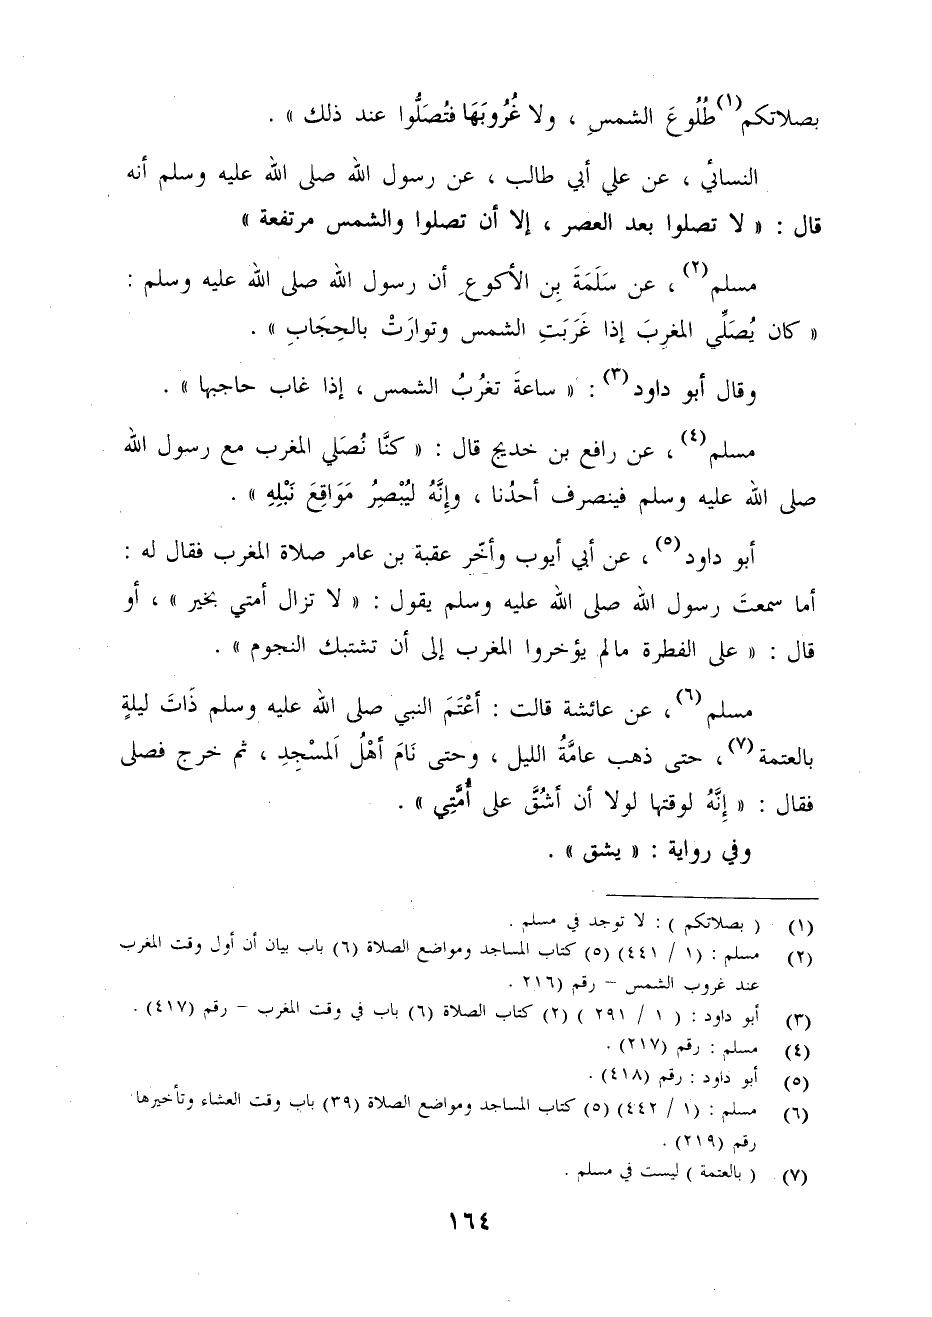 بصلاتكم(١) طُلُوعَ الشمسِ ، ولا غُرُوبَهَا فتُصَلُّوا عند ذلك » .
النسائي ، عن علي أبي طالب ، عن رسول الله صلى الله عليه وسلم أنه
قال : « لا تصلوا بعد العصر ، إلا أن تصلوا والشمس مرتفعة »
مسلم(٢) ، عن سَلَمَةَ بِن الأكوعِ أن رسول الله صلى الله عليه وسلم :
« كان يُصَلِّي المغربَ إذا غَرَبَتِ الشمس وتوارَتْ بالحِجَابِ » .
وقال أبو داود(٣) : « ساعةَ تغرُبُ الشمس ، إذا غاب حاجبها » .
مسلم(٤) ، عن رافع بن خديج قال : « كنَّا نُصَلي المغرب مع رسول الله
صلى الله عليه وسلم فينصرف أحدُنا ، وإِنَّهُ ليُبْصِرُ مَوَاقِعَ نَبْلِهِ » .
أبو داود(٥) ، عن أبي أيوب وأخّر عقبة بن عامر صلاة المغرب فقال له :
أما سمعتَ رسول الله صلى الله عليه وسلم يقول : « لا تزال أمتي بخير » ، أو
قال : « على الفطرة مالم يؤخروا المغرب إلى أن تشتبك النجوم » .
مسلم(٦) ، عن عائشة قالت : أعْتَمَ النبي صلى الله عليه وسلم ذَاتَ ليلةٍ
بالعتمة(٧) ، حتى ذهب عامَّةُ الليل ، وحتى نَامَ أهْلُ اَلمسْجِدِ ، ثم خرج فصلى
فقال : « إِنَّهُ لوقتها لولا أن أشُقَّ على أُمَّتِي » .
وفي رواية : « يشق » .
(١) ( بصلاتكم ) : لا توجد في مسلم .
(٢) مسلم : (١ / ٤٤١) (٥) كتاب المساجد ومواضع الصلاة (٦) باب بيان أن أول وقت المغرب
عند غروب الشمس – رقم (٢١٦ .
(٣) أبو داود : ( ١ / ٢٩١ ) (٢) كتاب الصلاة (٦) باب في وقت المغرب – رقم (٤١٧) .
(٤) مسلم : رقم (٢١٧) .
(٥) أبو داود : رقم (٤١٨) .
(٦) مسلم : (١ / ٤٤٢) (٥) كتاب المساجد ومواضع الصلاة (٣٩) باب وقت العشاء وتأخيرها
رقم (٢١٩) .
(٧) ( بالعتمة ) ليست في مسلم .
١٦٤